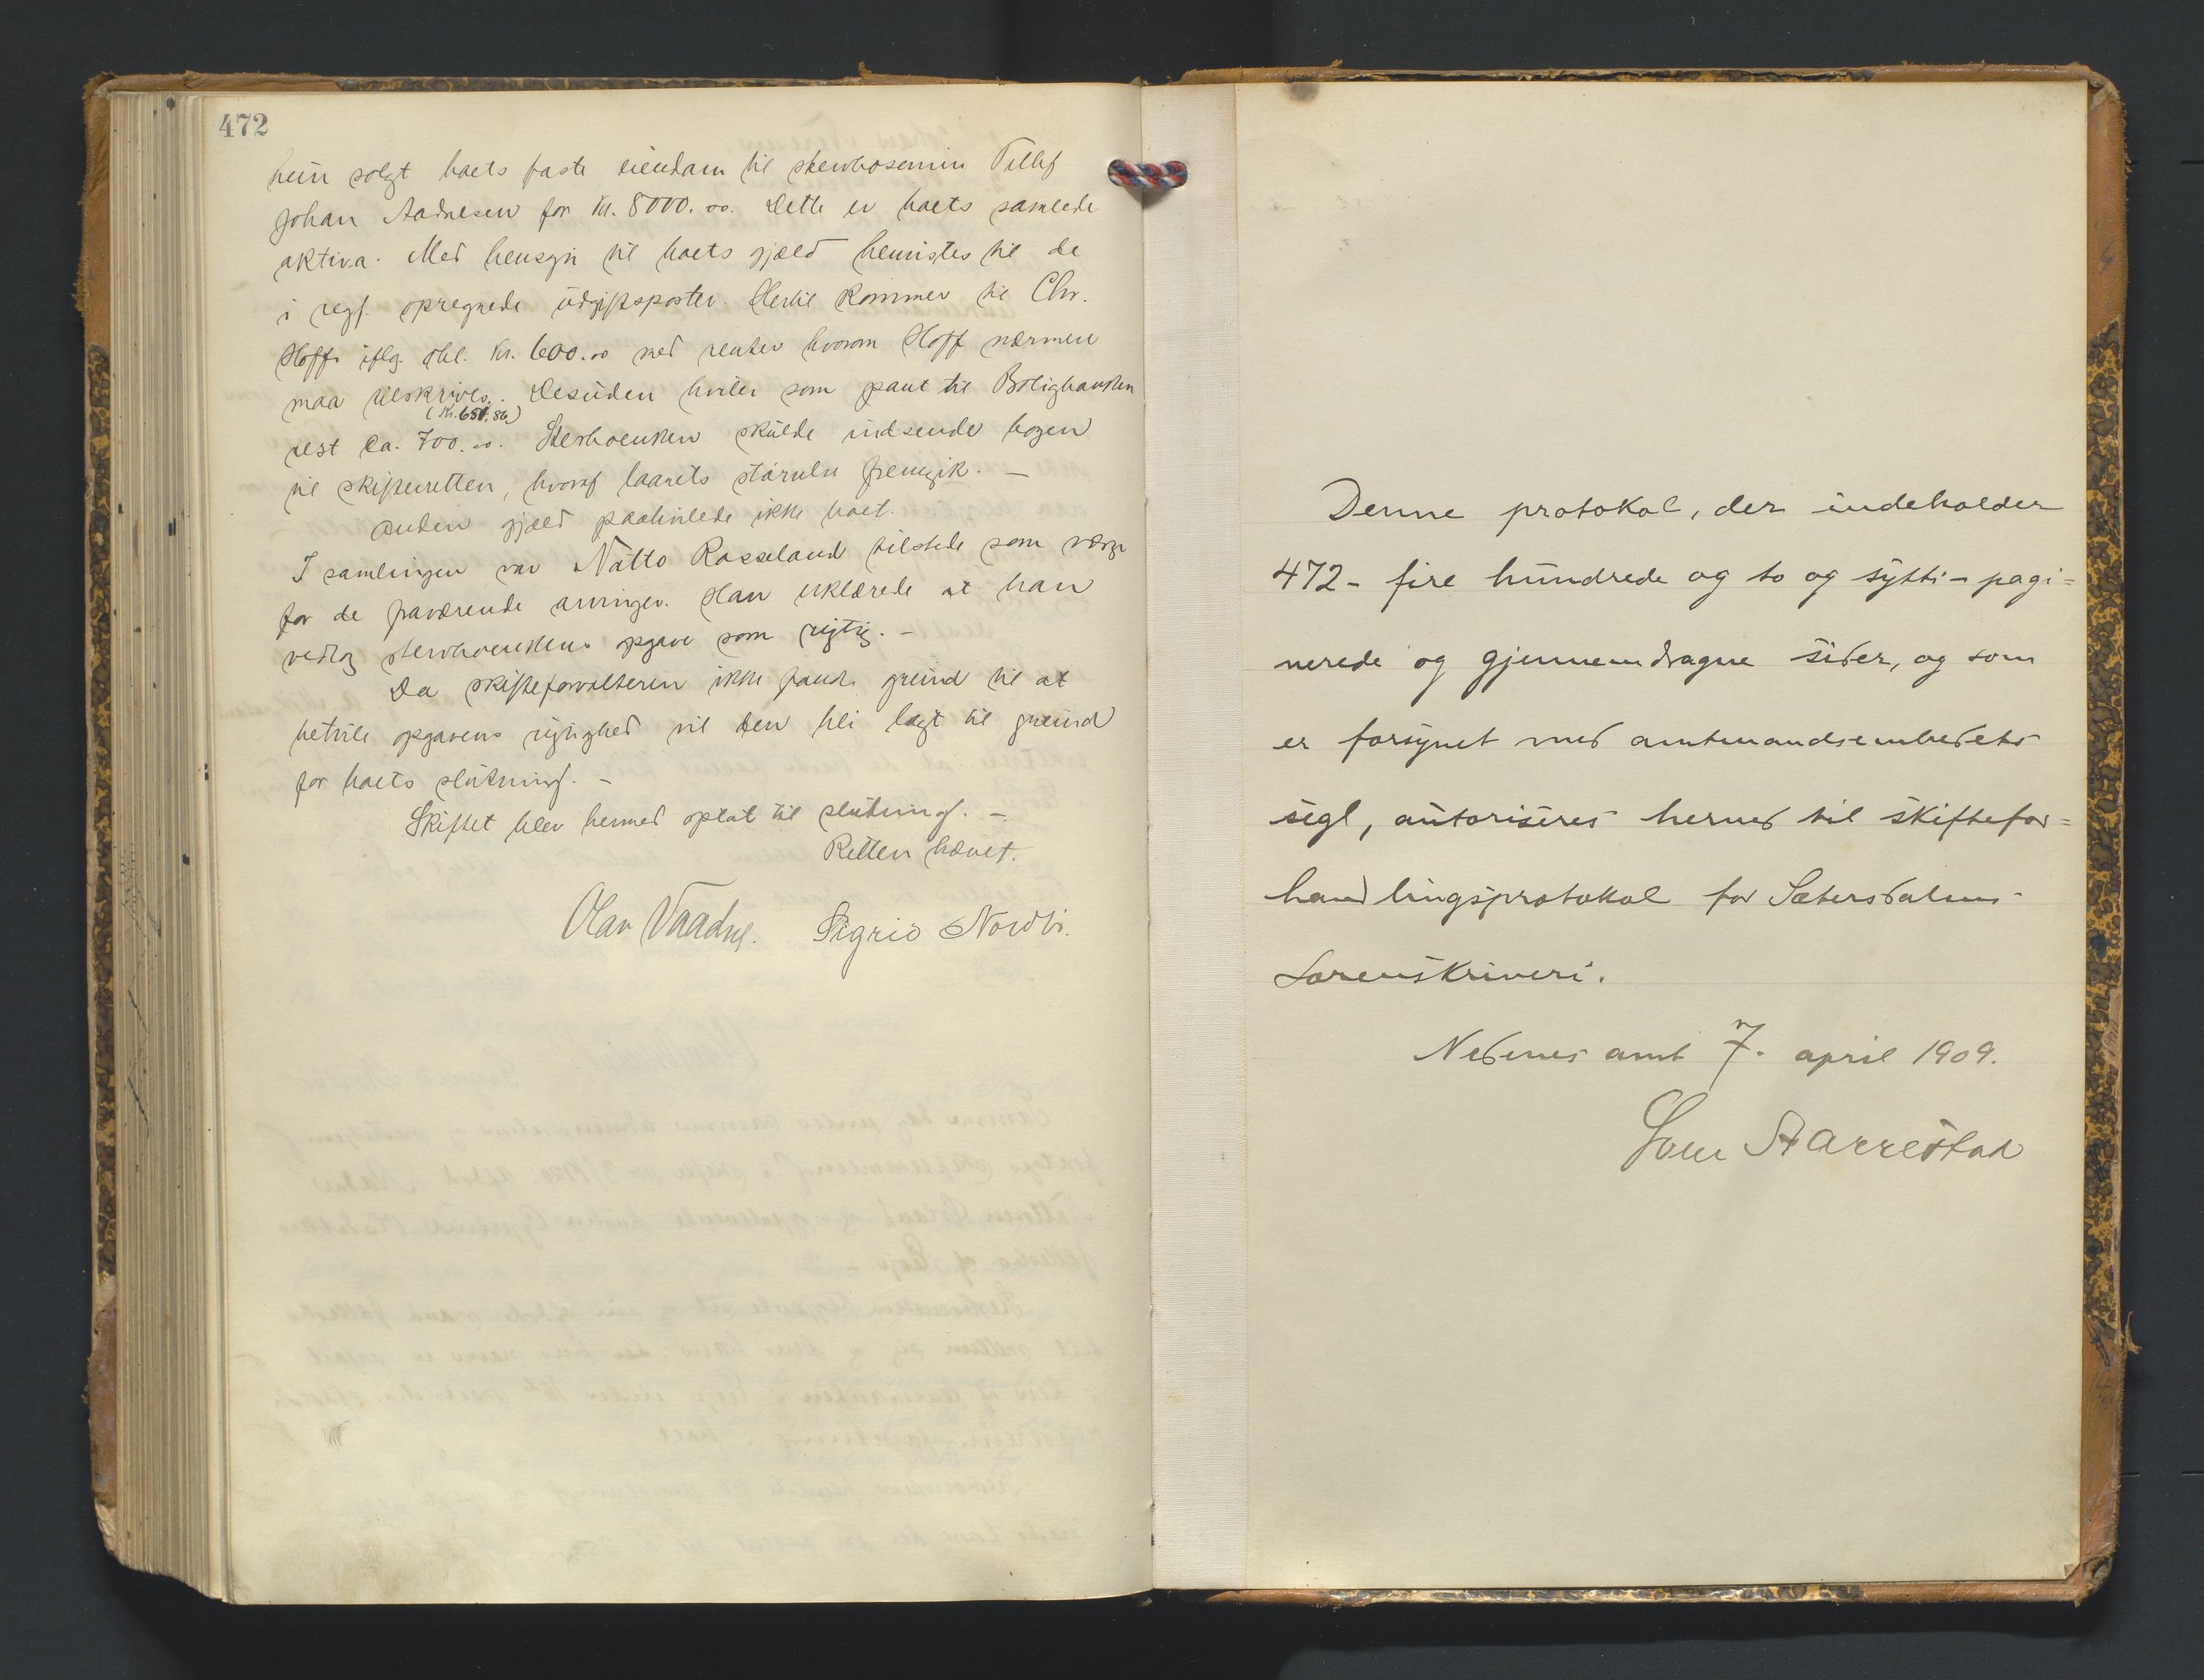 472
hun solgt boets faste eiendom til stervbosønnen Tellef
Johan Aadnesen for Kr. 8000.00. Dette er boets samlede
aktiva. Med hensyn til boets gjæld henvistes til de
i regf. opregnede udgiftsposter. Hertil kommer til Chr.
Hoff iflg. obl. Kr. 600.00 med renter hvorom Hoff nærmere
maa tilskrives. Desuden hviler som pant til Boligbanken
(Kr. 651,86)
rest ca. 700.00. Sterboenken skulde indsende bogen
til skifteretten, hvoraf laanets størrelse fremgik. —
Anden gjæld paahvilede ikke boet.
I samlingen var Natto Rosseland tilstede som verge
for de fraværende arvinger. Han erklærede at han
vedtog stervboenkens opgave som rigtig. —
Da skifteforvalteren ikke fandt grund til at
betvile opgavens rigtighed vil den bli lagt til grund
for boets slutning. —
Skiftet blev hermed optat til slutning. —
Retten hævet.
Olav Vaadne. Sigrid Nordbø.
Denne protokol, der indeholder
472 - fire hundrede og to og sytti - pagi=
nerede og gjennemdragne sider, og som
er forsynet med amtmandsembedets
segl, autoriseres herved til skiftefor=
handlingsprotokol for Sætersdalens
Sorenskriveri.
Nedenes amt 7. april 1909.
Sven Aarrestad